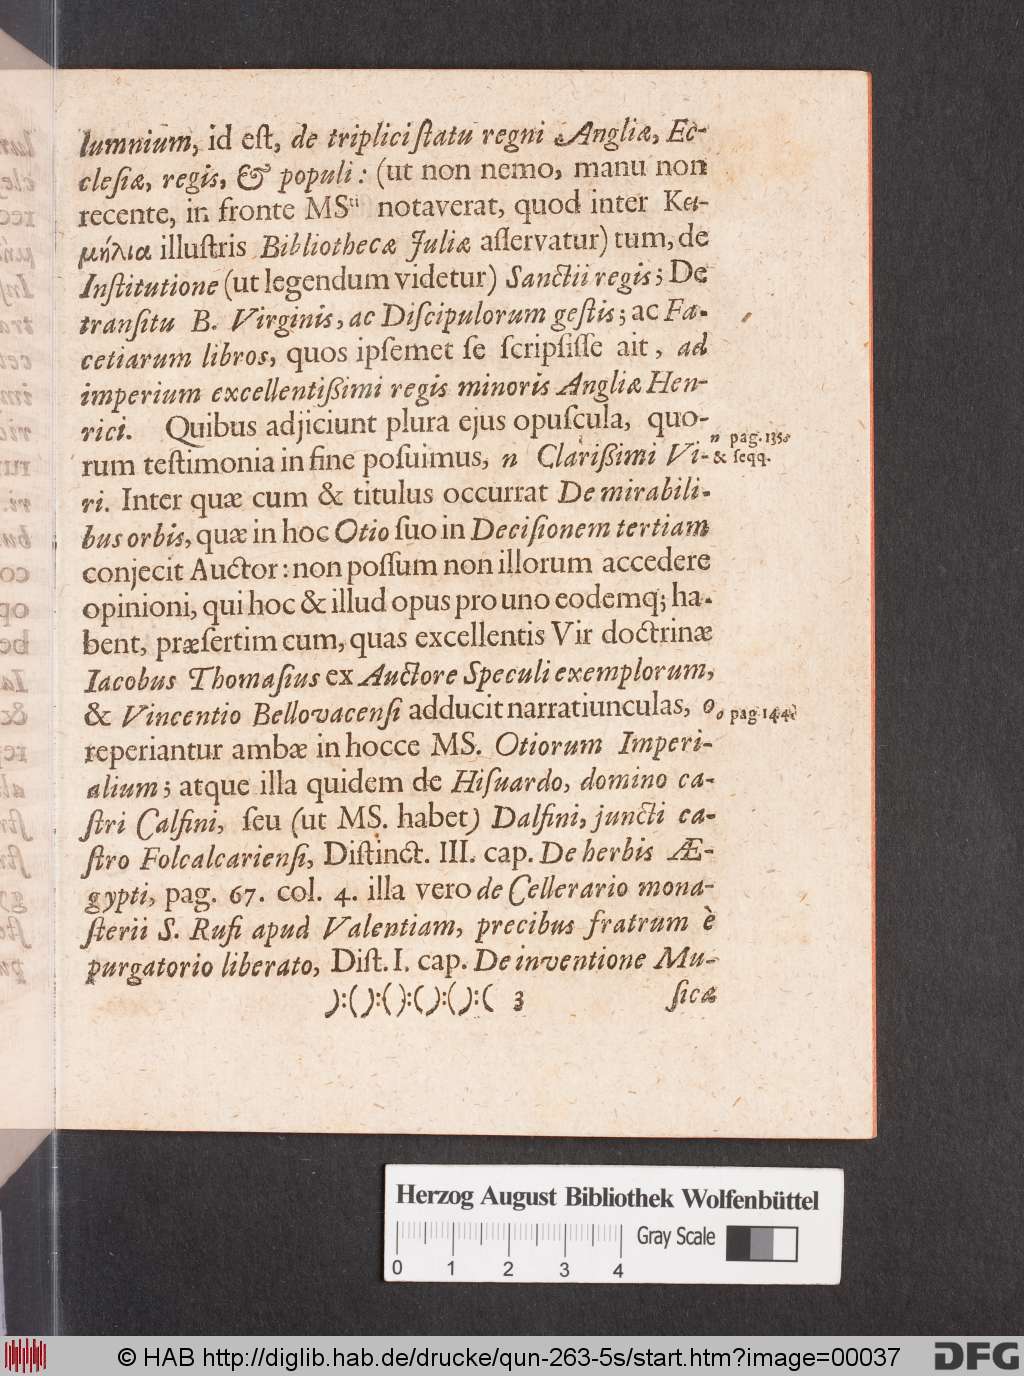 lumnium, id eſt, de triplici ſtatu regni Angliæ, Ec-
cleſiæ, regis, & populi: (ut non nemo, manu non
recente, in fronte MSti notaverat, quod inter Κει-
μήλια illuſtris Bibliothecæ Juliæ aſſervatur) tum, de
Inſtitutione (ut legendum videtur) Sanctii regis; De
tranſitu B. Virginis, ac Diſcipulorum geſtis; ac Fa-
cetiarum libros, quos ipſemet ſe ſcripſiſſe ait, ad
imperium excellentißimi regis minoris Angliæ Hen-
rici. Quibus adjiciunt plura ejus opuſcula, quo-
rum teſtimonia in fine poſuimus, n Clarißimi Vi-
n pag. 135.
& ſeqq.
ri. Inter quæ cum & titulus occurrat De mirabili-
bus orbis, quæ in hoc Otio ſuo in Deciſionem tertiam
conjecit Auctor: non poſſum non illorum accedere
opinioni, qui hoc & illud opus pro uno eodemq; ha-
bent, præſertim cum, quas excellentis Vir doctrinæ
Iacobus Thomaſius ex Auctore Speculi exemplorum,
& Vincentio Bellovacenſi adducit narratiunculas, o
o pag. 144.
reperiantur ambæ in hocce MS. Otiorum Imperi-
alium; atque illa quidem de Hiſuardo, domino ca-
ſtri Calfini, ſeu (ut MS. habet) Dalfini, juncti ca-
ſtro Folcalcarienſi, Diſtinct. III. cap. De herbis Æ-
gypti, pag. 67. col. 4. illa vero de Cellerario mona-
ſterii S. Rufi apud Valentiam, precibus fratrum è
purgatorio liberato, Diſt. I. cap. De inventione Mu-
):( ):( ):( ):( ):( 3 ſicæ
Herzog August Bibliothek Wolfenbüttel
Gray Scale
0 1 2 3 4
© HAB http://diglib.hab.de/drucke/qun-263-5s/start.htm?image=00037 DFG